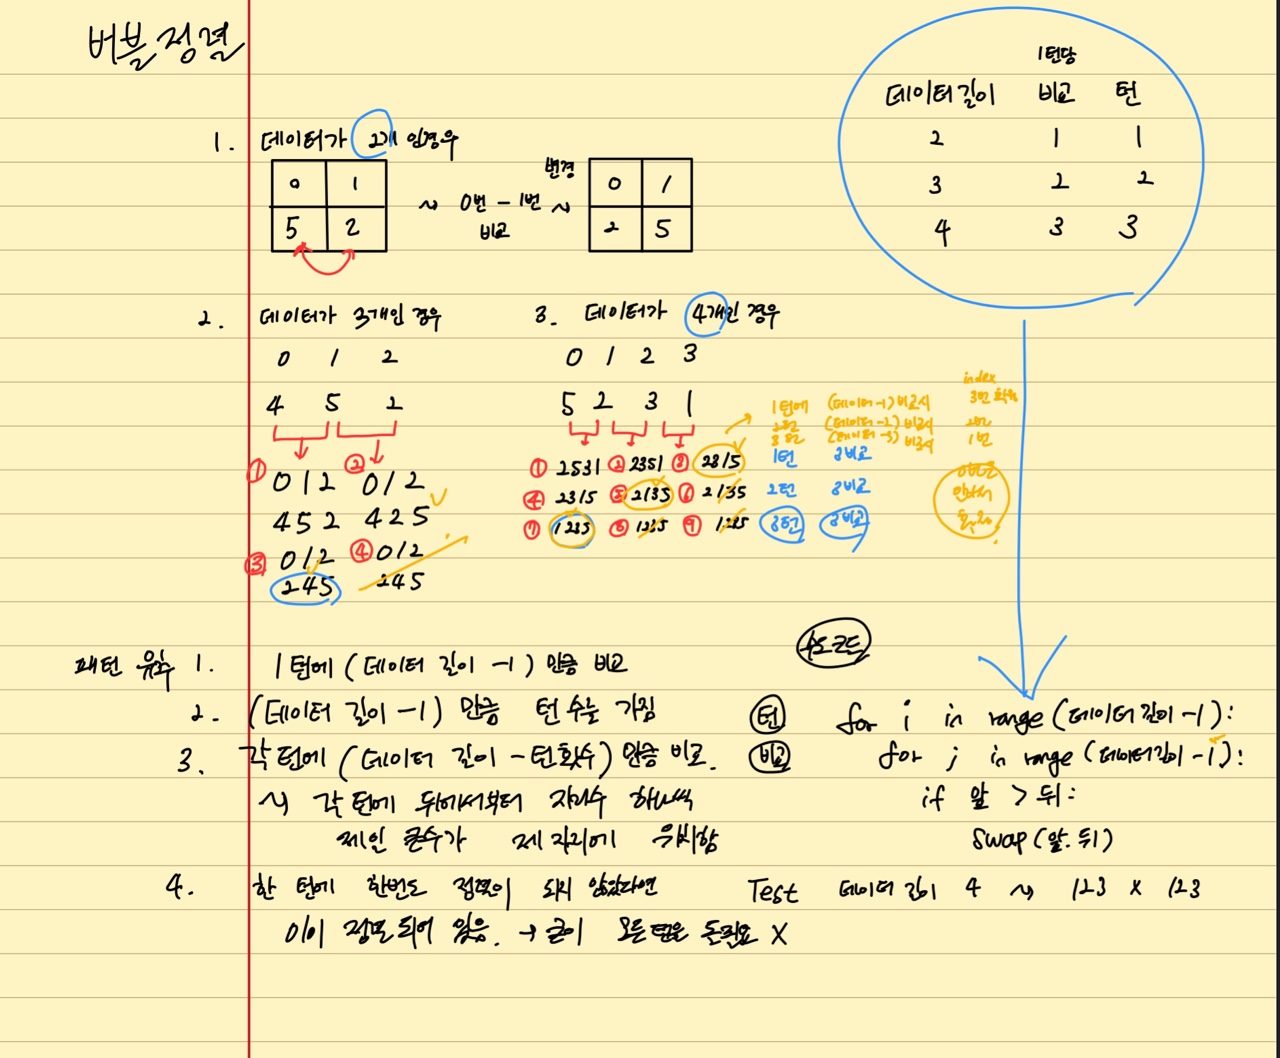 버블정렬
1턴당
데이터길이 비교 턴
2 1 1
3 2 2
4 3 3
1. 데이터가 2개 인경우
0 1
5 2
~ 0번 - 1번 ~
비교
변경
0 1
2 5
2. 데이터가 3개인 경우
0 1 2
4 5 2
① 012 ② 012
452 425
③ 012 ④ 012
245 245
3. 데이터가 4개인 경우
0 1 2 3
5 2 3 1
① 2531 ② 2351 ③ 2315
④ 2315 ⑤ 2135 ⑥ 2135
⑦ 1235 ⑧ 1235 ⑨ 1235
1턴에 (데이터-1) 비교시
2턴 (데이터-2) 비교시
3턴 (데이터-3) 비교시
index
3번
2번
1번
1턴 3비교
2턴 3비교
3턴 3비교
패턴 유추 1. 1턴에 (데이터 길이 -1) 만큼 비교
2. (데이터 길이 -1) 만큼 턴 수를 가짐
3. 각 턴에 (데이터 길이 - 턴횟수) 만큼 비교.
~ 각 턴에 뒤에서부터 자리수 하나씩
제인 큰수가 제 자리에 위치함
4. 한 턴에 한번도 정렬이 되지 않았다면
이미 정렬되어 있음. → 굳이 모든턴을 돌필요 X
수도코드
턴 for i in range (데이터길이-1):
비교 for j in range (데이터길이-i):
if 앞 > 뒤:
swap(앞.뒤)
Test 데이터 길이 4 ~ 123 x 123